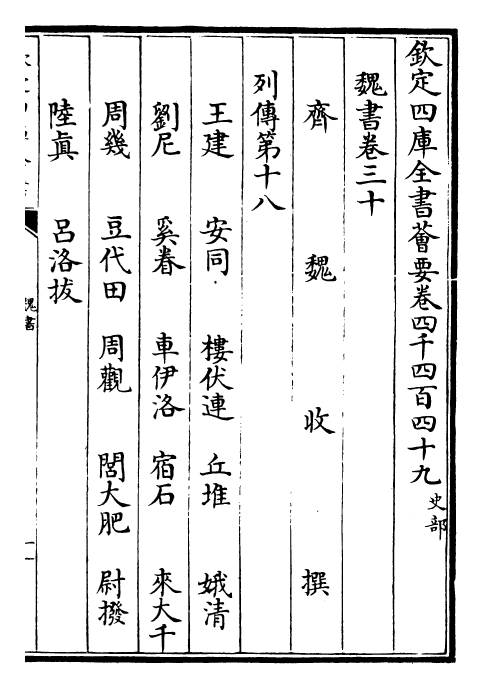 欽定四庫全書薈要卷四千四百四十九 史部
魏書卷三十
齊 魏 收 撰
列傳第十八
王建 安同 樓伏連 丘堆 娥清
劉尼 奚眷 車伊洛 宿石 來大千
周幾 豆代田 周觀 閭大肥 尉撥
陸眞 呂洛拔
魏書